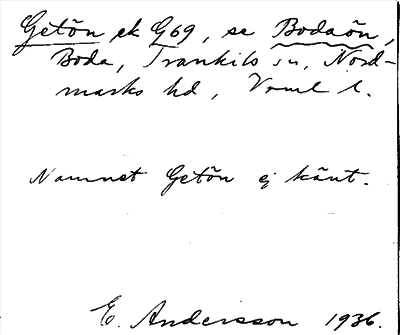 Getön ek G69, se Bodaön,
Boda, Trankils sn, Nord-
marks hd, Vrml l.
Namnet Getön ej känt.
E. Andersson 1936.